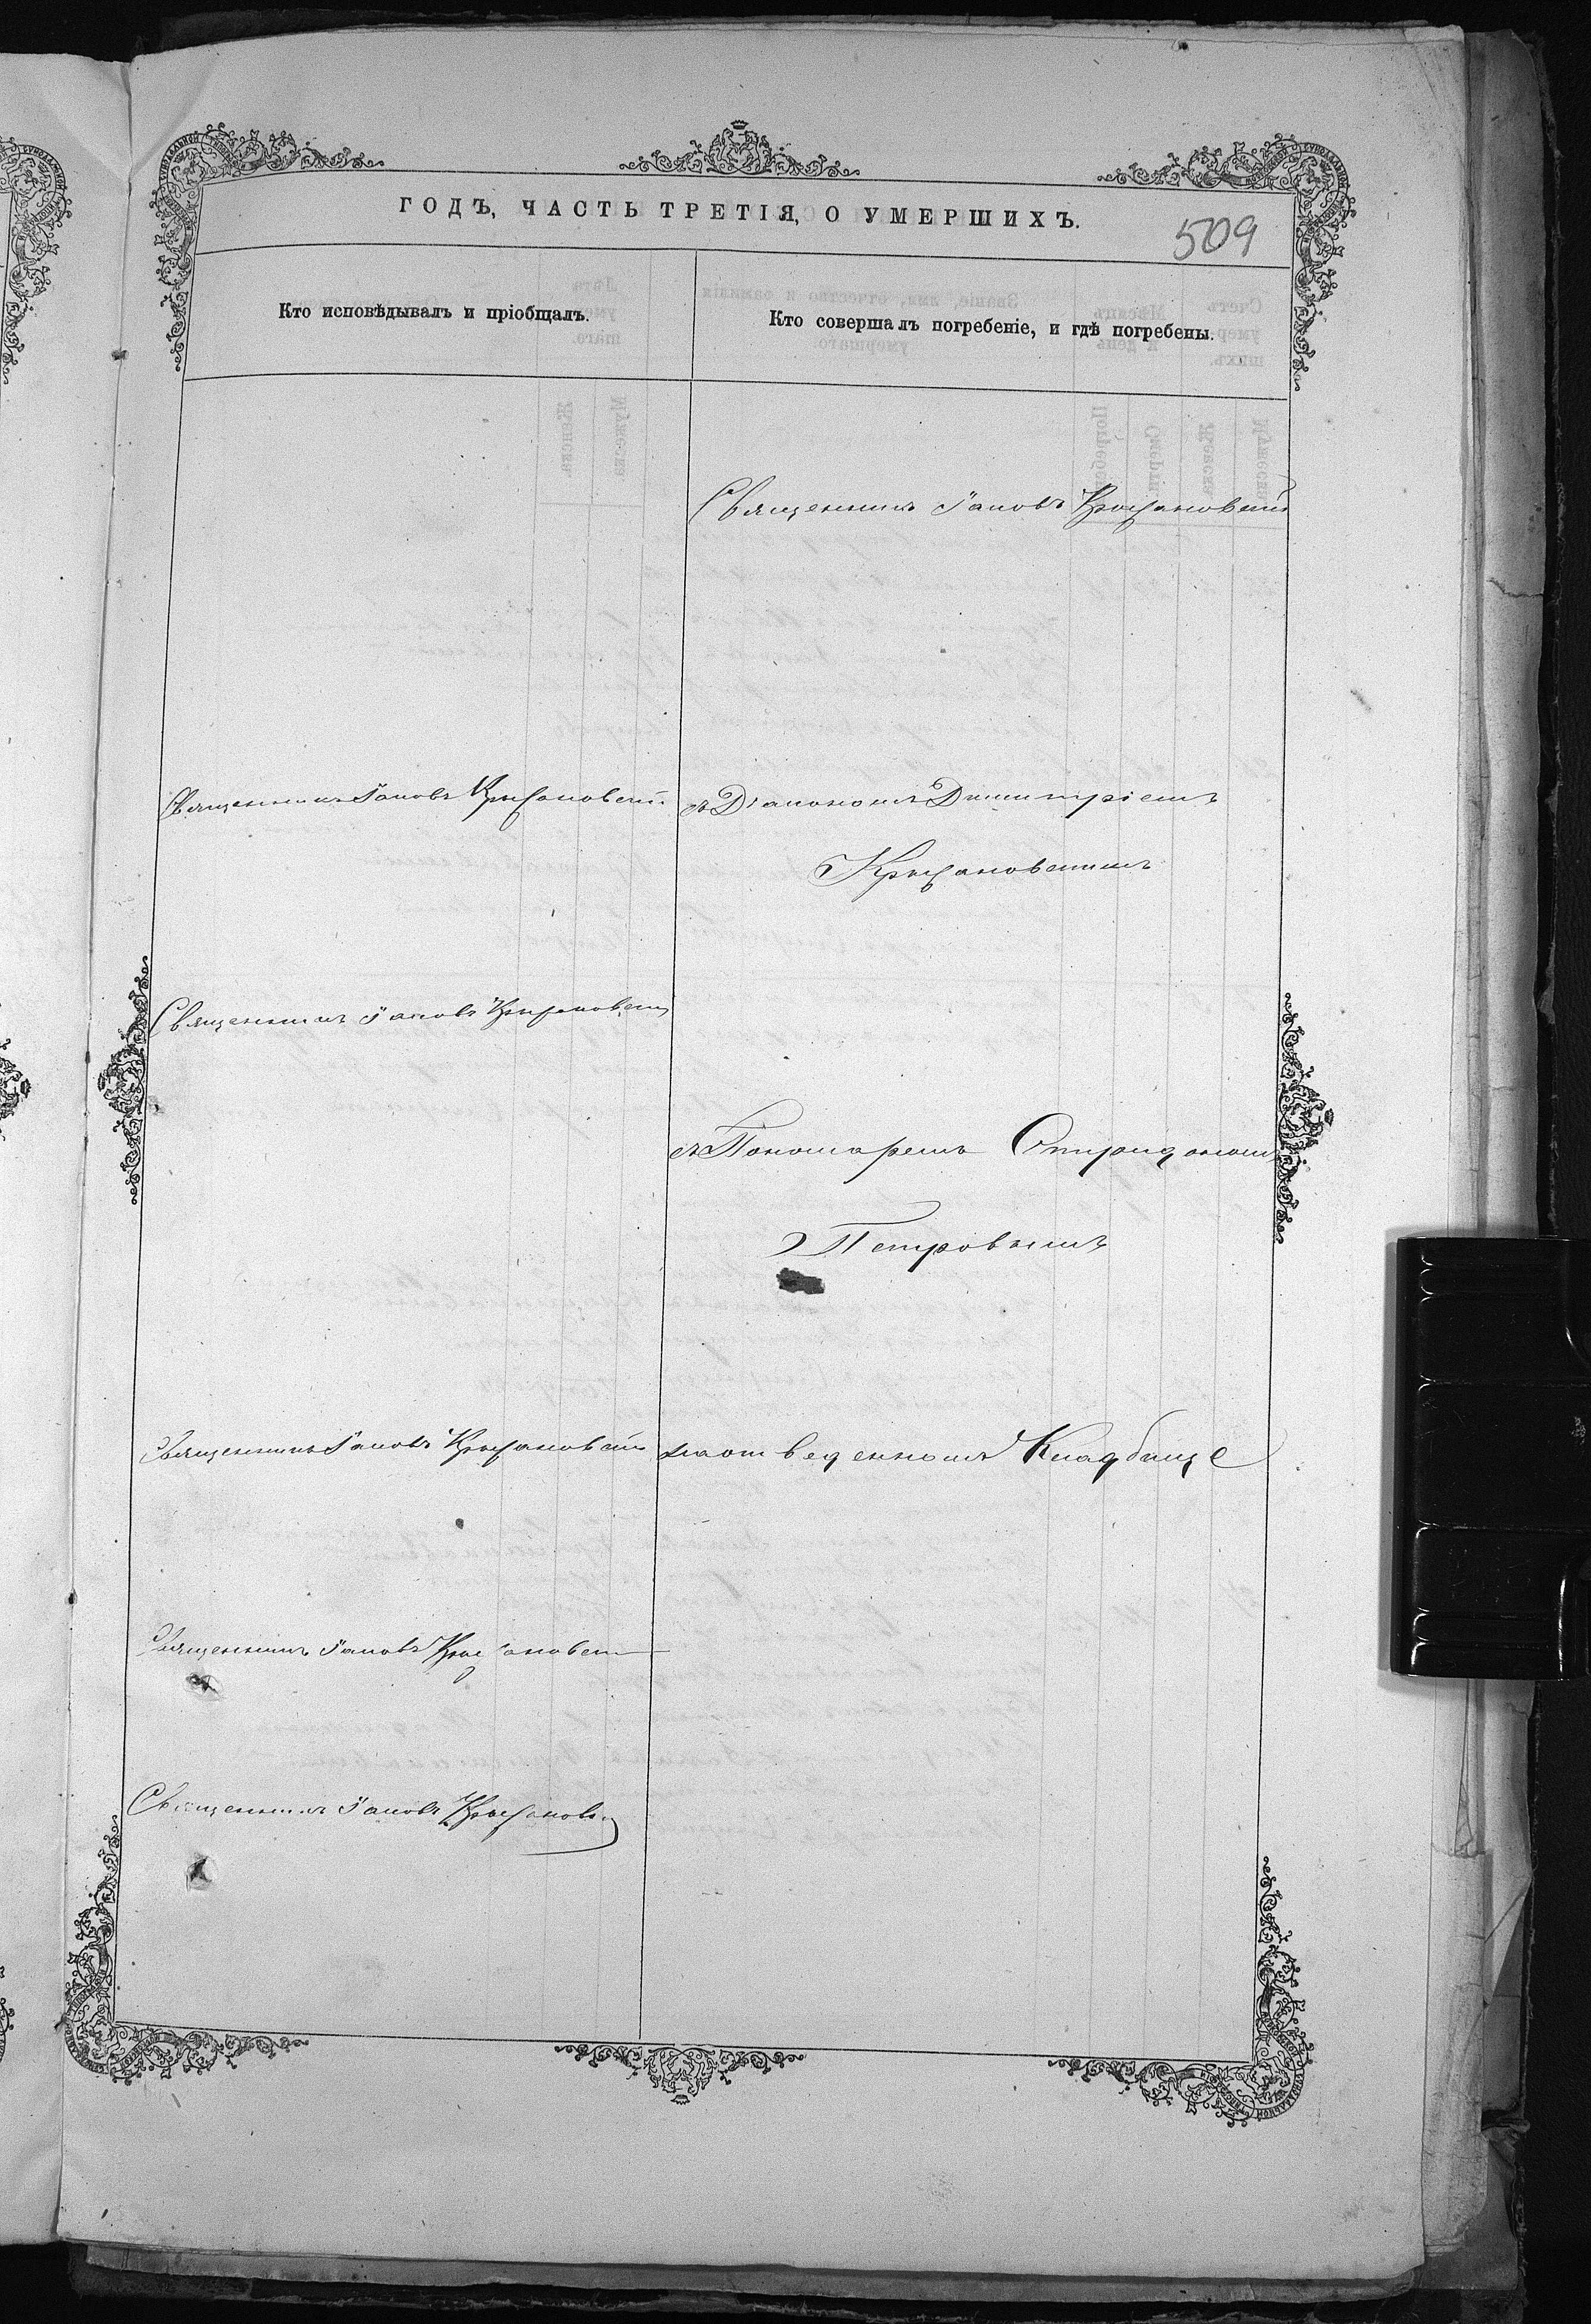 ГОДЪ, ЧАСТЬ ТРЕТІЯ, О УМЕРШИХЪ.
509
Кто исповѣдывалъ и пріобщалъ.
Кто совершалъ погребеніе, и гдѣ погребены.
Священникъ Іаковъ Крыжановскій
Священникъ Іаковъ Крыжановскій
съ Діакономъ Димитріемъ
Крыжановскимъ
Священникъ Іаковъ Крыжановскій
съ Пономаремъ Спиридономъ
Петровымъ
Священникъ Іаковъ Крыжановскій
на отведенномъ Кладбище
Священникъ Іаковъ Крыжановскій
Священникъ Іаковъ Крыжановск